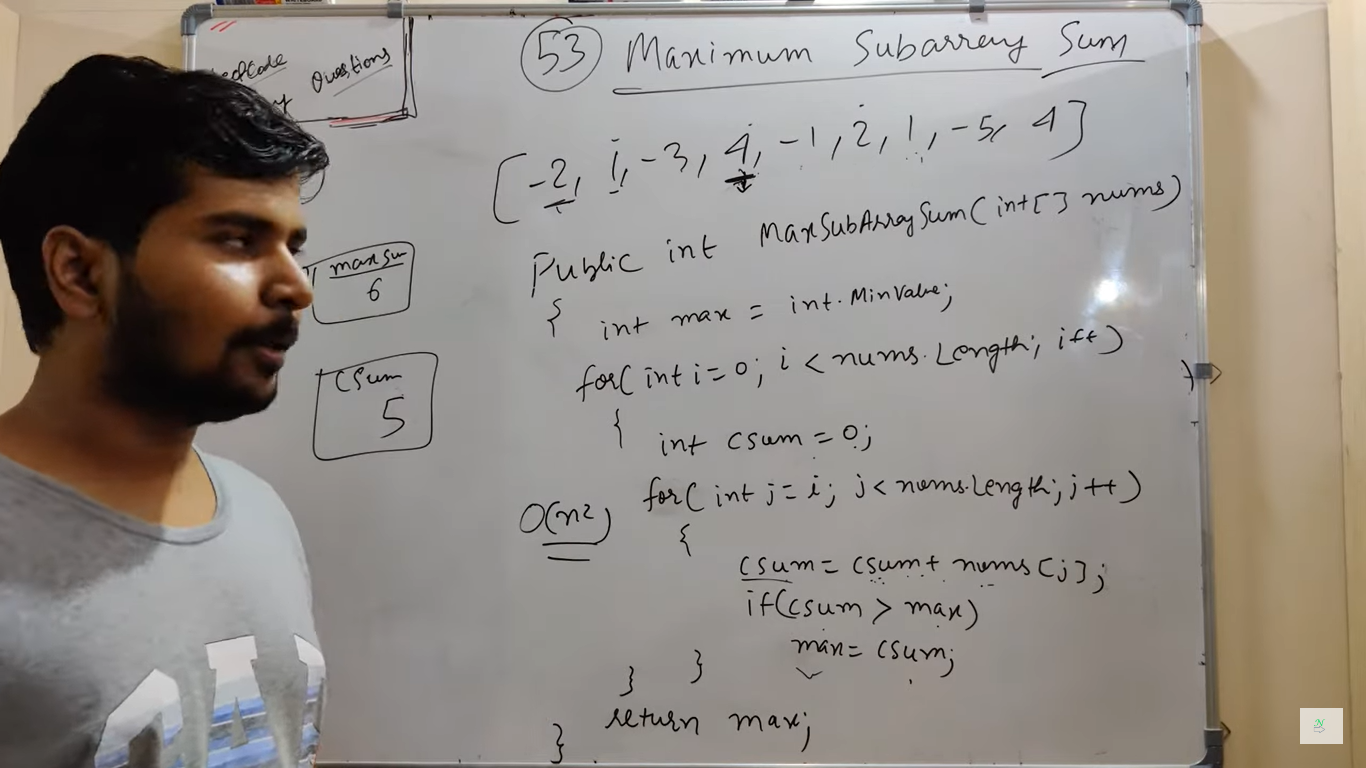 Questions
53 Maximum Subarray Sum
[-2, 1, -3, 4, -1, 2, 1, -5, 4]
Public int MaxSubArraySum(int[] nums)
{ int max = int.MinValue;
for(int i=0; i < nums.Length; i++)
{ int csum = 0;
for( int j=i; j< nums.Length; j++)
{
csum = csum + nums[j];
if(csum > max)
max = csum;
} }
return max;
}
O(n²)
max su
6
csum
5